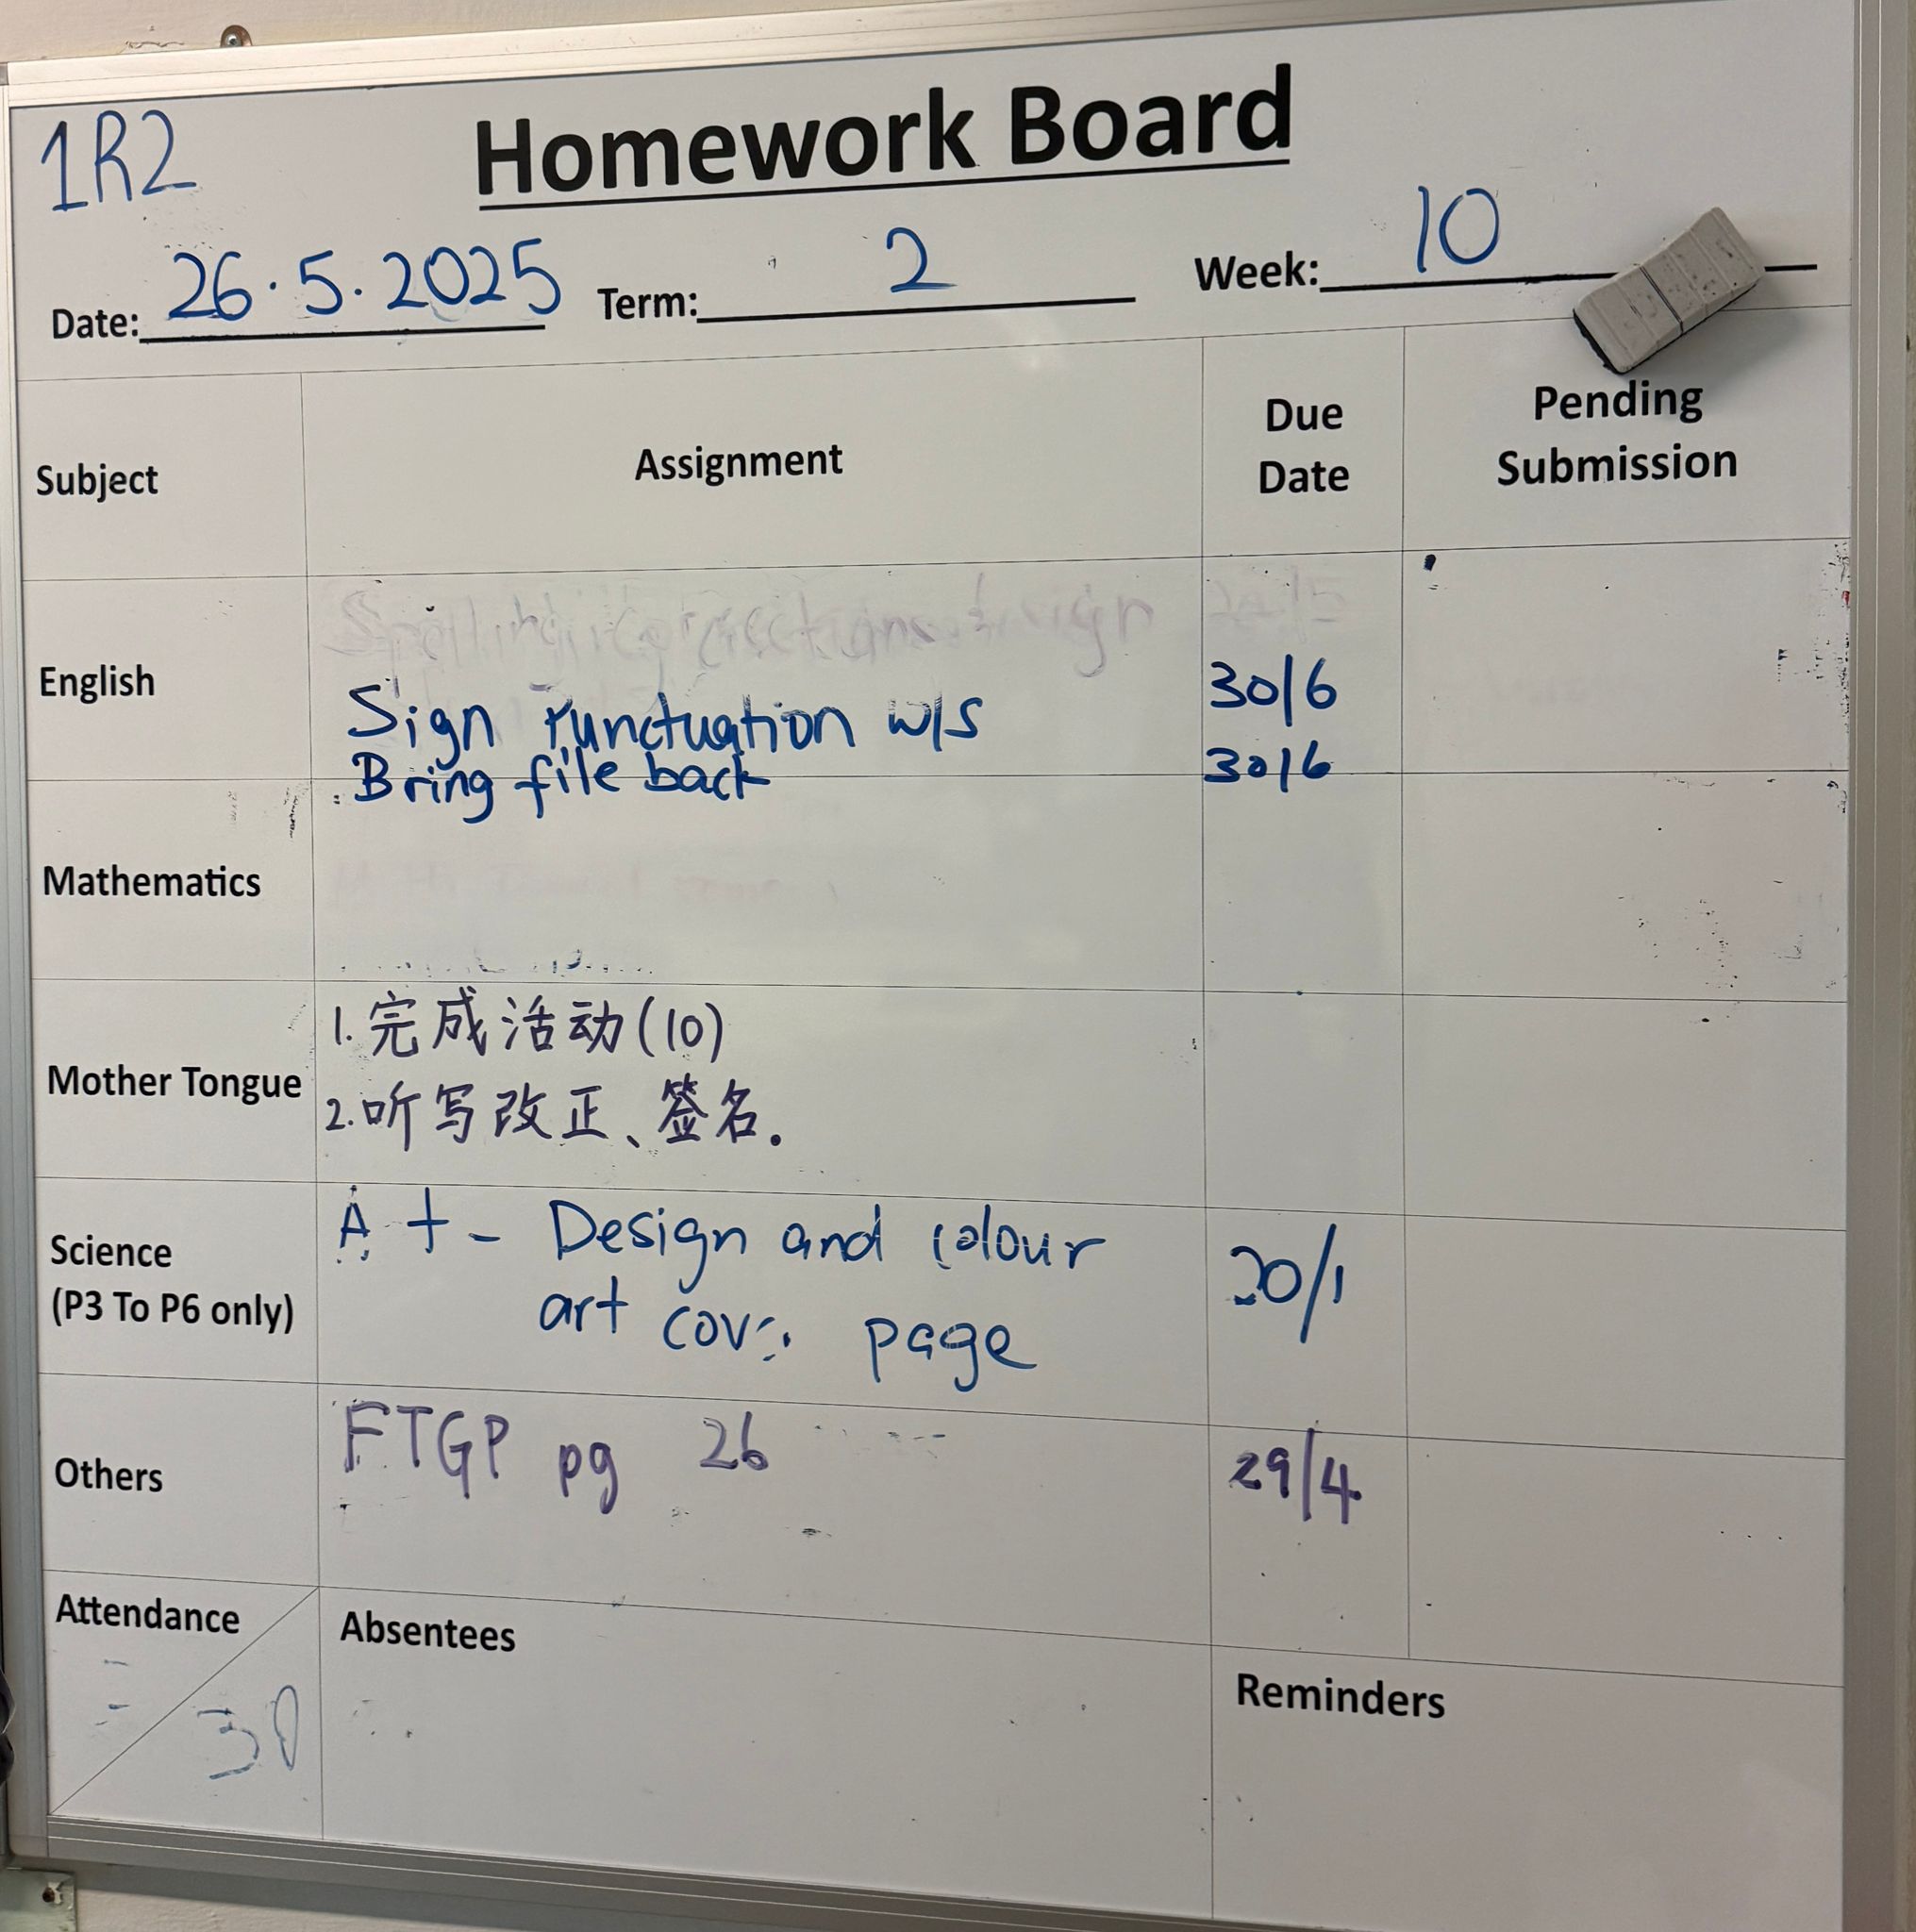 1R2
Homework Board
Date: 26.5.2025 Term: 2 Week: 10
Subject Assignment Due Date Pending Submission
English
Sign Punctuation w/s 30/6
Bring file back 30/6
Mathematics
Mother Tongue
1. 完成活动(10)
2. 听写改正、签名.
Science
(P3 To P6 only)
A t - Design and colour
art page
20/1
Others
FTGP pg 26 29/4
Attendance
30
Absentees
Reminders